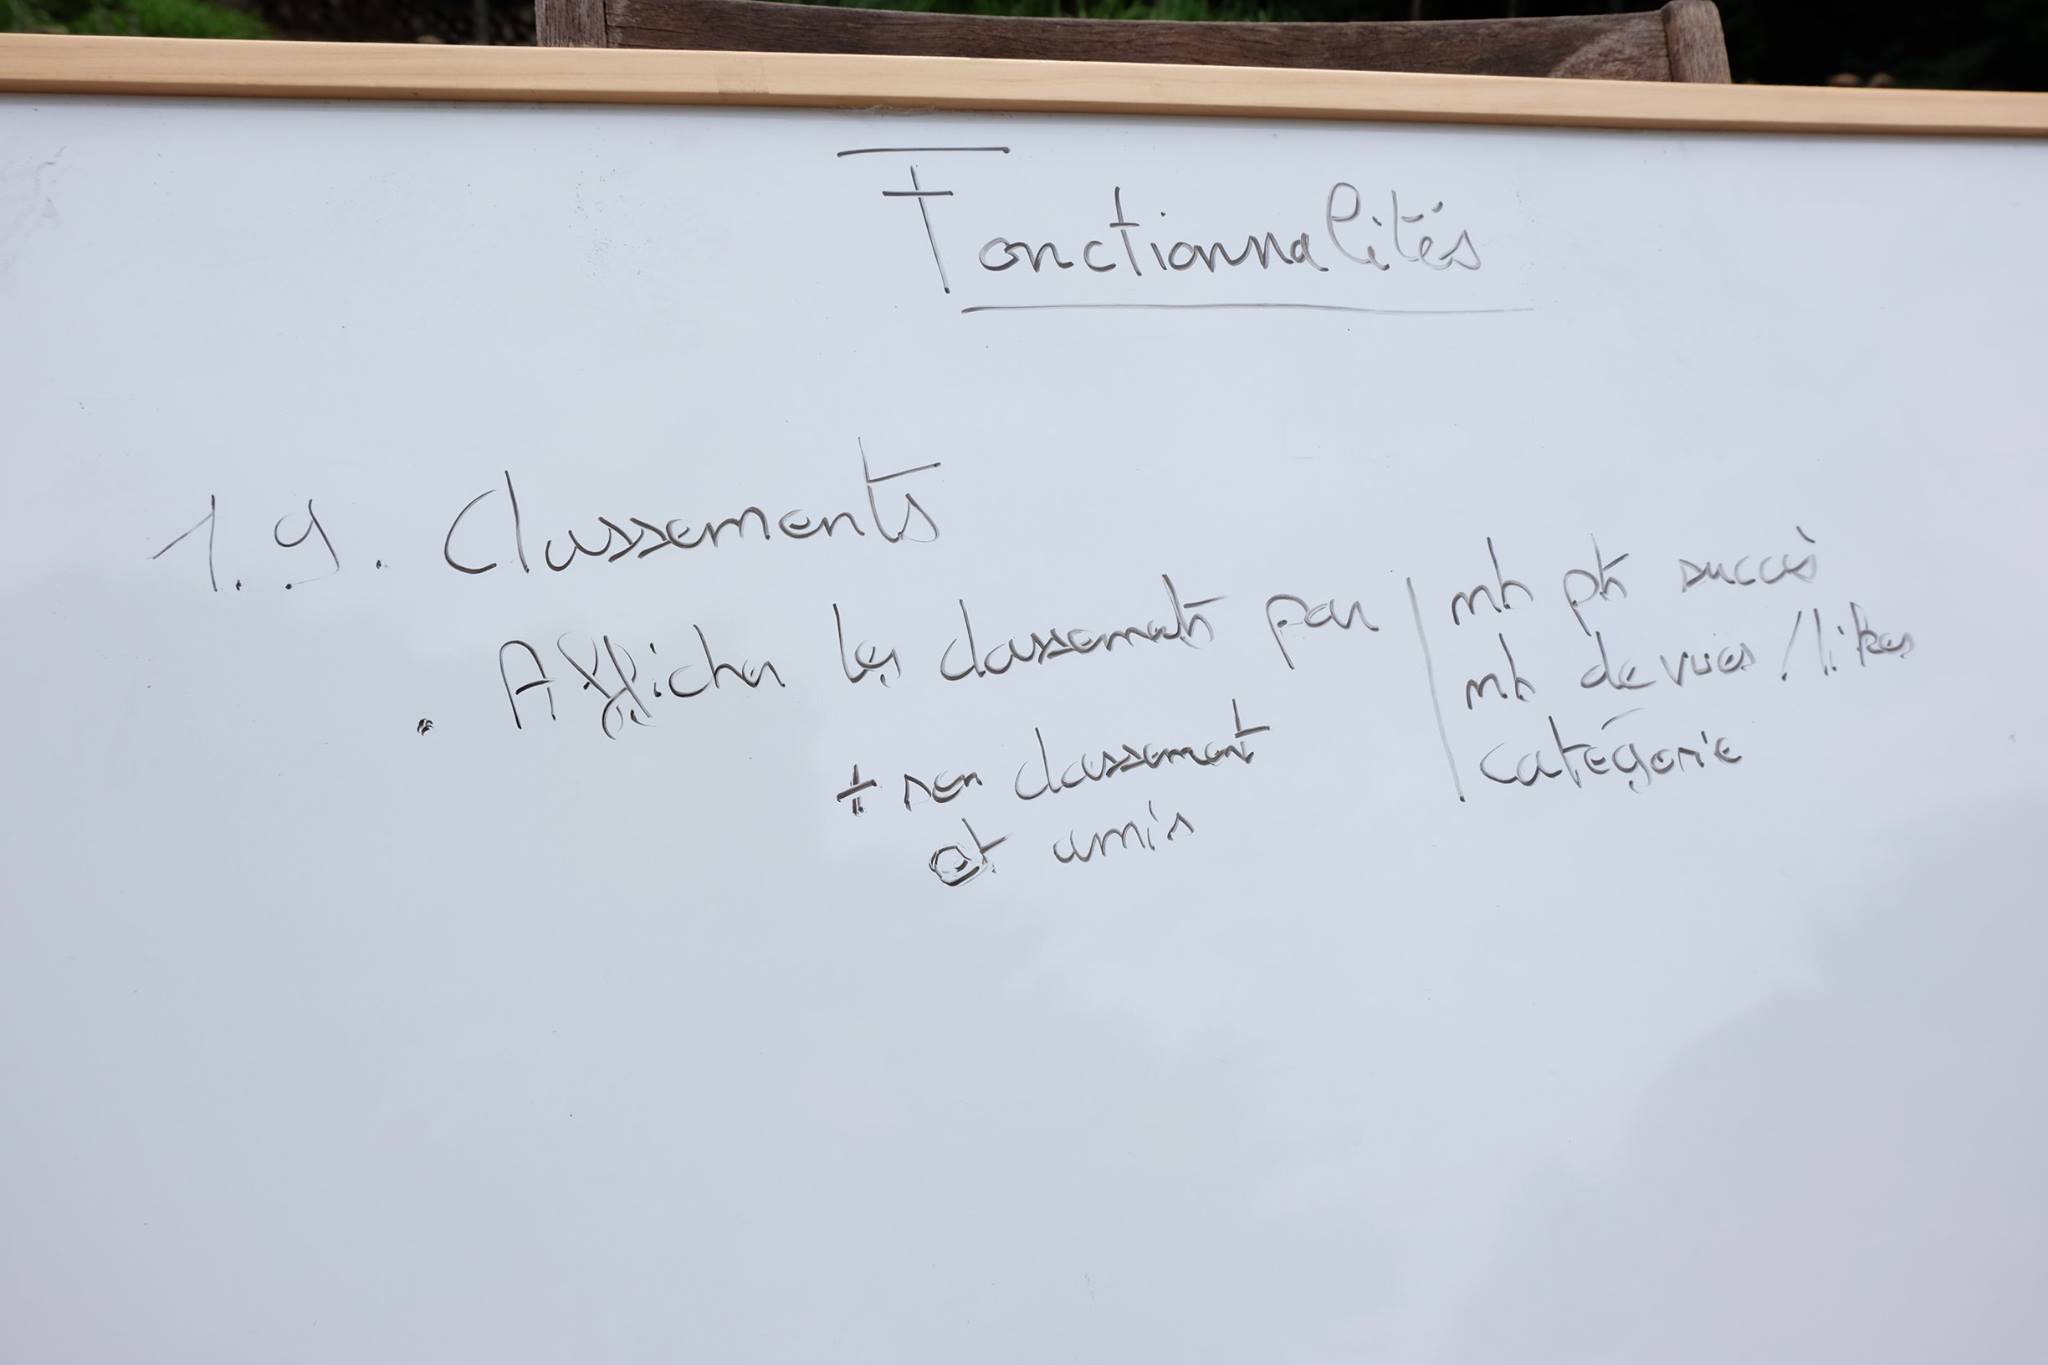 Fonctionnalités
1.9. Classements
. Afficher les classements par | nb pts succès
nb de vues / likes
+ son classement
catégorie
et amis